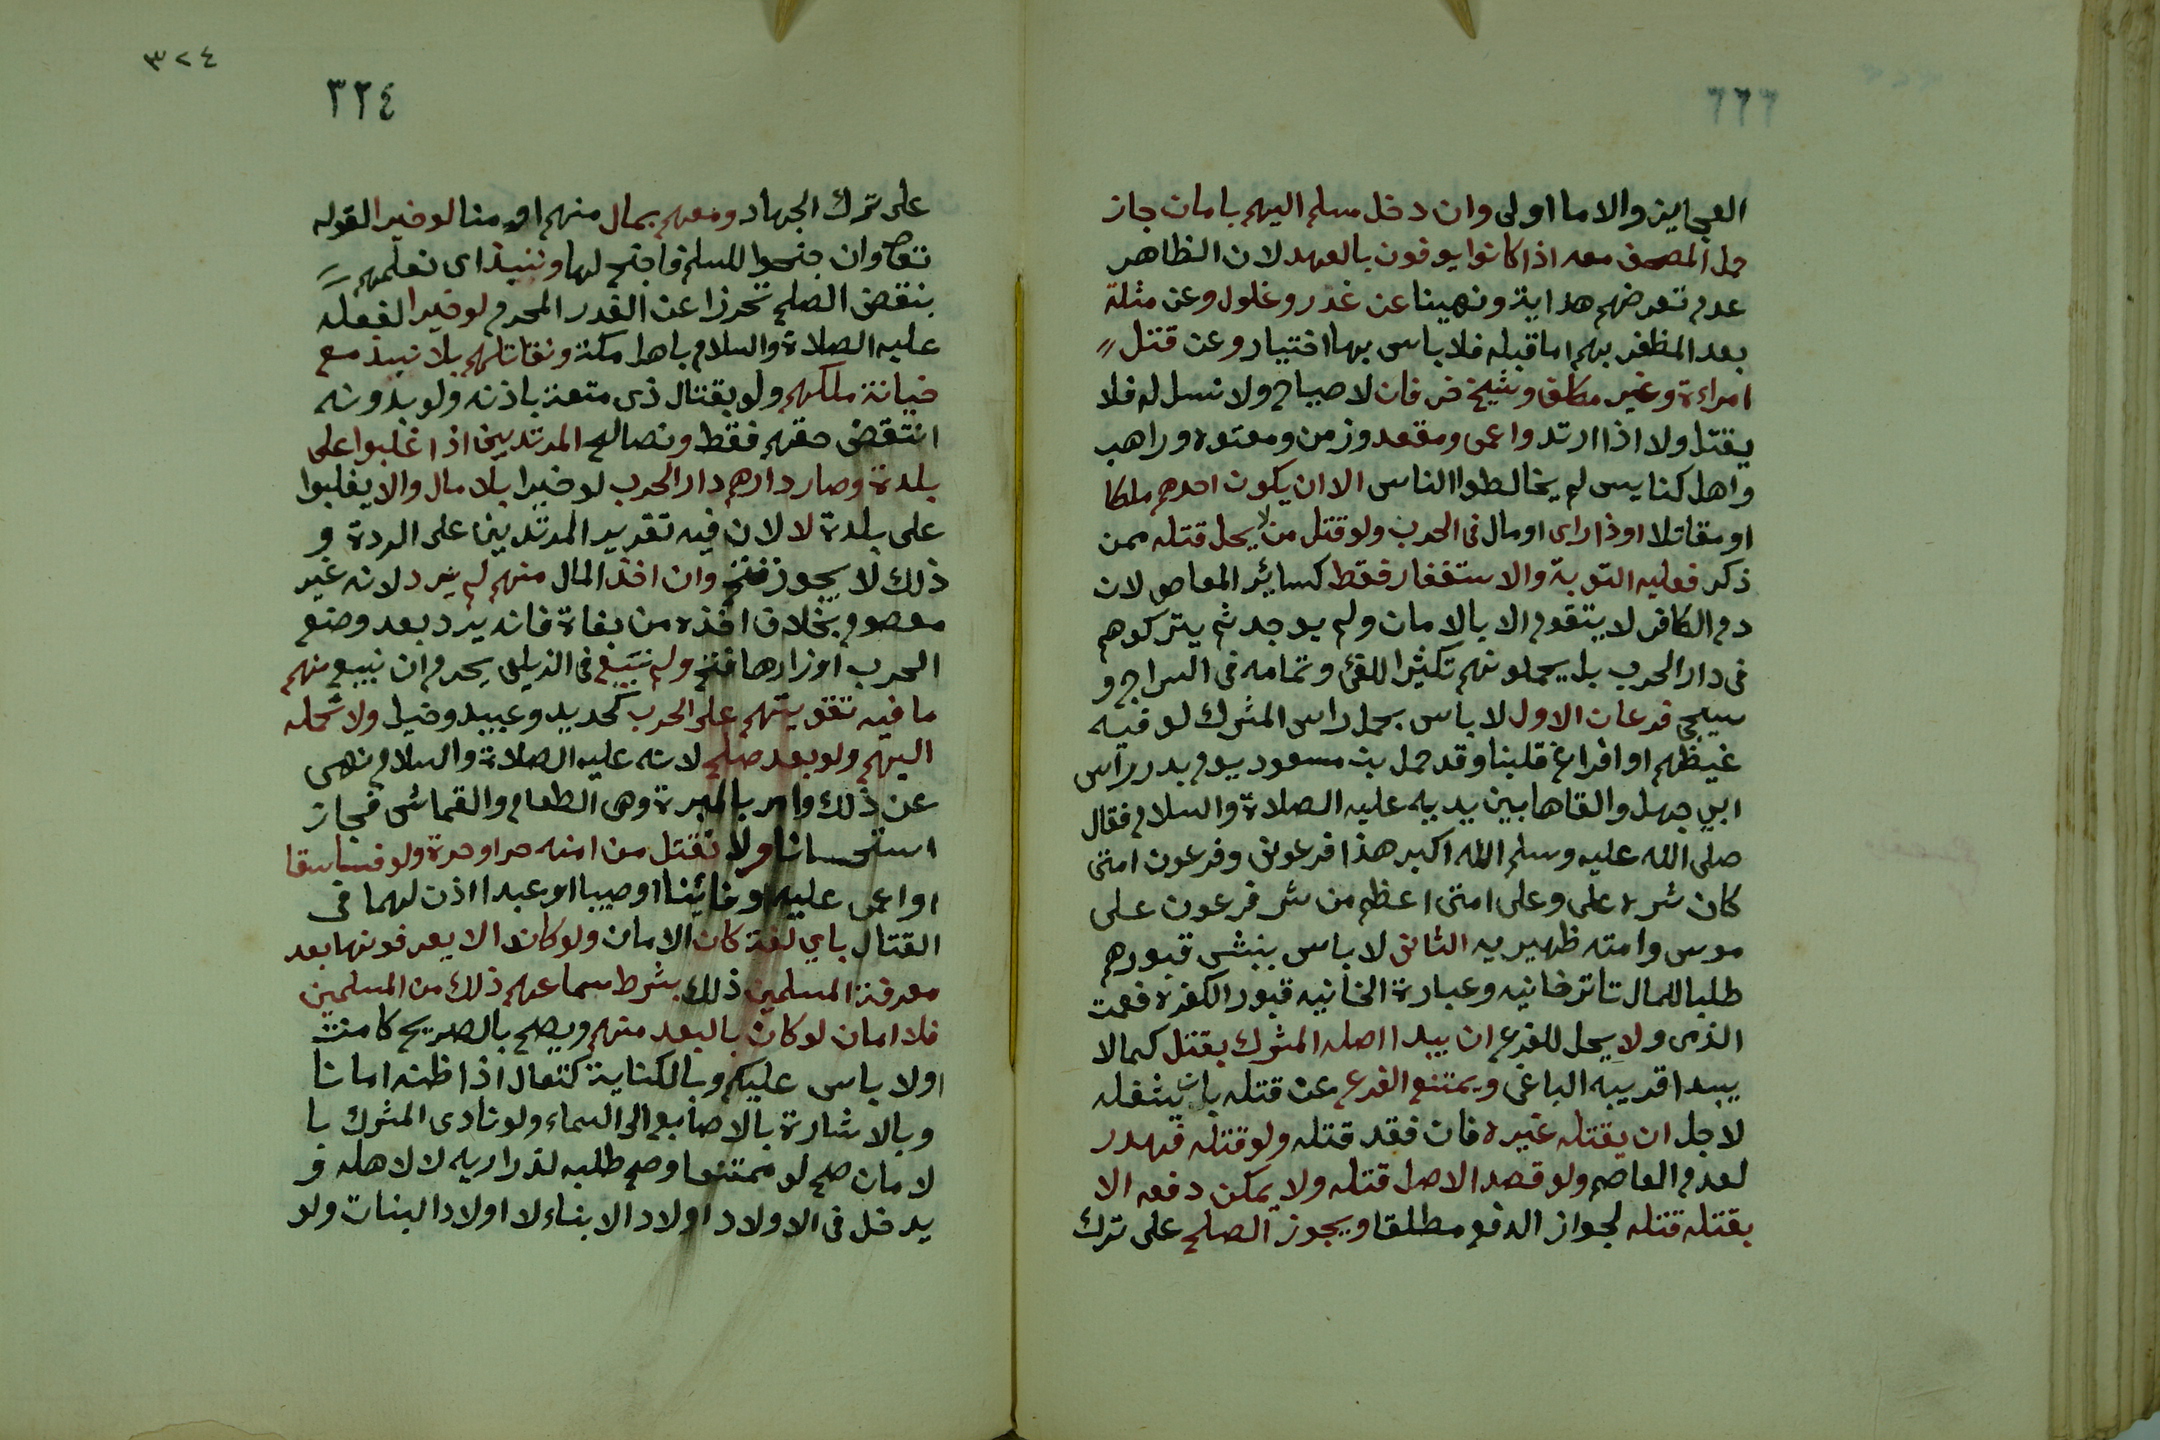 العجايز والاما اولى وان دخل مسلم اليهم بامان جاز
حمل المصحف معه اذا كانوا يوفون بالعهد لان الظاهر
عدم تعرضهم هداية ونهينا عن غدر وغلول وعن مثلة
بعد الظفر بهم اما قبله فلا باس بها اختيار وعن قتل
امراءة وغير مكلف وشيخ خر فان لا صياح ولا نسل له فلا
يقتل ولا اذا ارتد واعمى ومقعد وزمن ومعتوه وراهب
واهل كنايس لم يخالطوا الناس الا ان يكون احدهم ملكا
او مقاتلا او ذا راى او مال فى الحرب ولو قتل من لا يحل قتله ممن
ذكر فعليه التوبة والاستغفار فقط كسائر المعاصى لان
دم الكافر لا يتقوم الا بالامان ولم يوجد ثم يتركوهم
فى دار الحرب بل يحملونهم تكثيرا للفئ وتمامه فى السراج و
سيجى فرعان الاول لا باس بحمل راس المشرك لو فيه
غيظهم او افراغ قلبنا وقد حمل بن مسعود يوم بدر راس
ابي جهل والقاها بين يديه عليه الصلاة والسلام فقال
صلى الله عليه وسلم الله اكبر هذا فرعونى وفرعون امتى
كان شره على وعلى امتى اعظم من شر فرعون على
موسى وامته ظهيريه الثانى لا باس بنبش قبورهم
طلبا للمال تاترخانيه وعبارة الخانيه قبور الكفرة فعمت
الذمى ولا يحل للفرع ان يبدا اصله المشرك بقتل كمالا
يبدا قريبه الباغى ويمتنع الفرع عن قتله بان يشغله
لاجل ان يقتله غيره فان فقد قتله ولو قتله فهدر
لعدم العاصم ولو قصد الاصل قتله ولا يمكن دفعه الا
بقتله قتله لجواز الدفع مطلقا ويجوز الصلح على ترك
٣٢٤
٣٢٤
على ترك الجهاد ومعهم بمال منهم او منا لو خيرا لقوله
تعا وان جنحوا للسلم فاجنح لها وننبذ اى نعلمهم
بنقض الصلح تحرزا عن الغدر المحرم لو خيرا لفعله
عليه الصلاة والسلام باهل مكة ونقاتلهم بلا نبذ مع
خيانة ملكهم ولو بقتال ذى متعة باذنه ولو بدونه
انتقض حقهم فقط ونصالح المرتدين اذا غلبوا على
بلدة وصار دارهم دار الحرب لو خيرا بلا مال والا يغلبوا
على بلدة لا لان فيه تقرير المرتدين على الردة و
ذلك لا يجوز فتح وان اخذ المال منهم لم يرد لانه غير
معصوم بخلاف اخذه من بغاة فانه يرد بعد وضع
الحرب اوزارها فتح ولم نبع فى الزيلعى يحرم ان نبيع منهم
ما فيه تقويتهم على الحرب كحديد وعبيد وخيل ولا نحمله
اليهم ولو بعد صلح لانه عليه الصلاة والسلام نهى
عن ذلك وامر بالميرة وهى الطعام والقماش فجاز
استحسانا ولا نقتل من امنه حر او حرة ولو فساسقا
او اعمى عليه او فانيا او صبيا او عبدا اذن لهما فى
القتال باي لغة كان الامان ولو كان الا يعرفونها بعد
معرفة المسلمين ذلك بشرط سماعهم ذلك من المسلمين
فلا امان لو كان بالبعد منهم ويصح بالصريح كامنت
اولا باس عليكم وبالكناية كتعال اذا ظنه امانا
وبالاشارة بالاصابع الى السماء ولو نادى المشرك با
لامان صح لو ممتنعا وصح طلبه لذراريه لا لاهله و
يدخل فى الاولاد اولاد الابناء لا اولاد البنات ولو